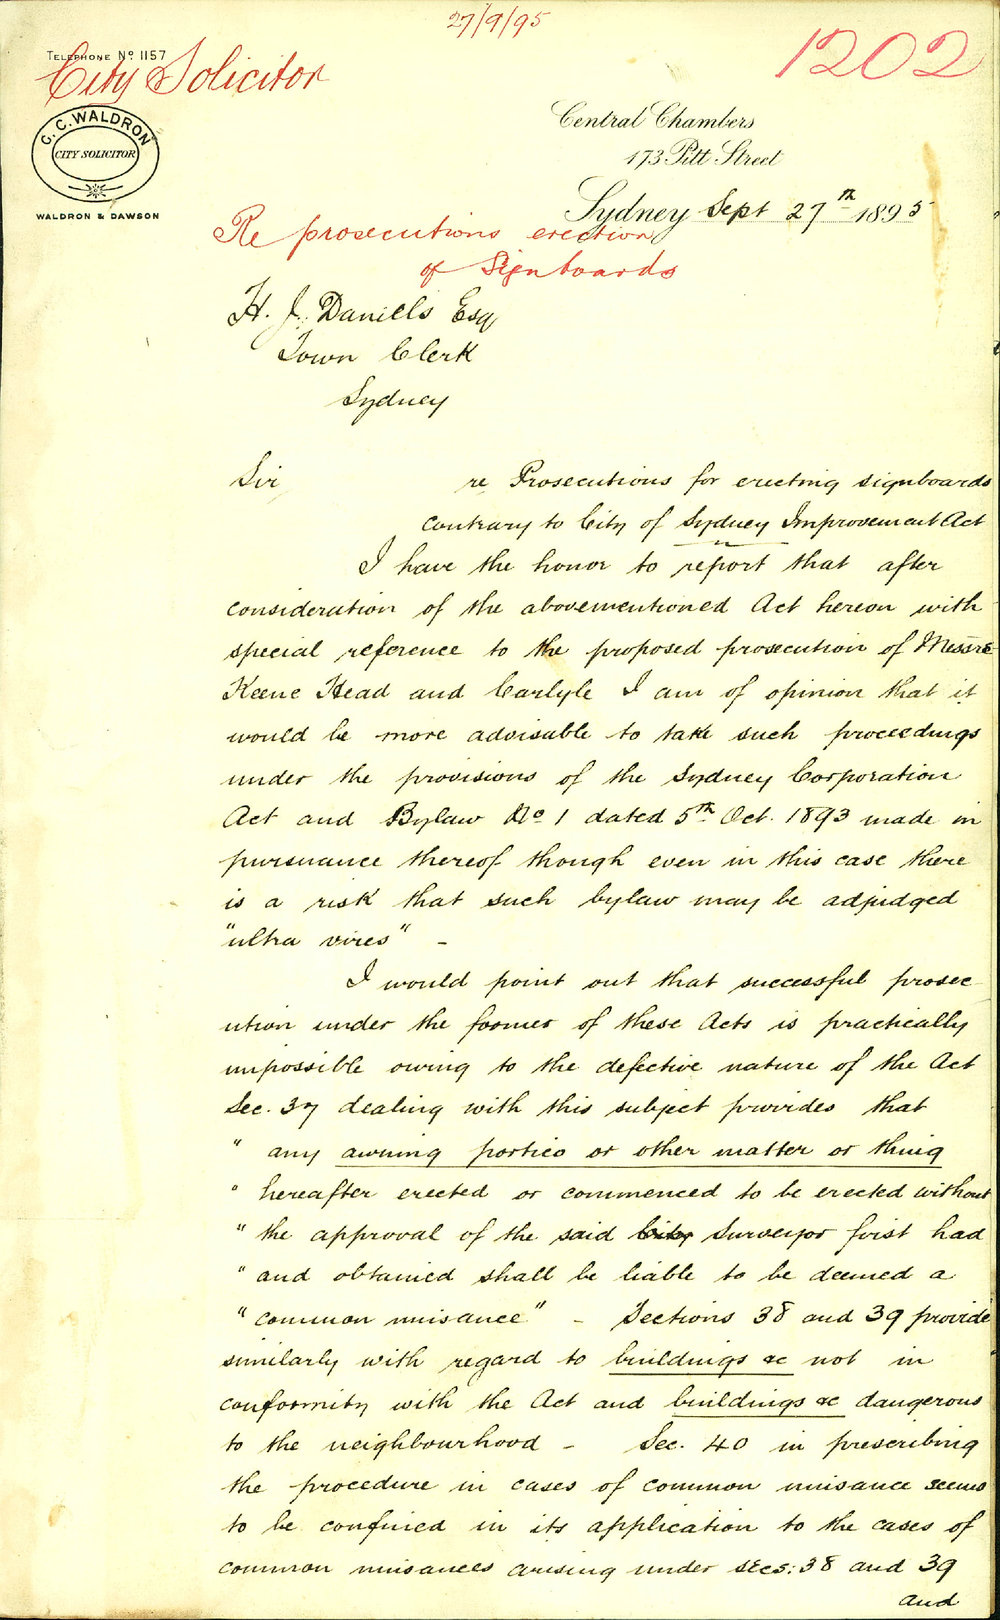 27/9/95
1202
TELEPHONE No. 1157
City Solicitor
C. C. WALDRON
CITY SOLICITOR
WALDRON & DAWSON
Central Chambers
173 Pitt Street
Sydney Sept 27th 1895
Re prosecutions erection
of Signboards
H. J. Daniels Esq
Town Clerk
Sydney
Sir re Prosecutions for erecting signboards
contrary to City of Sydney Improvement Act
I have the honor to report that after
consideration of the abovementioned Act hereon with
special reference to the proposed prosecution of Messrs
Keene Head and Carlyle I am of opinion that it
would be more advisable to take such proceedings
under the provisions of the Sydney Corporation
Act and Bylaw No 1 dated 5th Oct. 1893 made in
pursuance thereof though even in this case there
is a risk that such bylaw may be adjudged
"ultra vires" -
I would point out that successful prosec
ution under the former of these Acts is practically
impossible owing to the defective nature of the Act
Sec. 37 dealing with this subject provides that
" any awning portico or other matter or thing
" hereafter erected or commenced to be erected without
" the approval of the said City Surveyor first had
" and obtained shall be liable to be deemed a
" common nuisance" - Sections 38 and 39 provide
similarly with regard to buildings &c not in
conformity with the Act and buildings &c dangerous
to the neighbourhood - Sec. 40 in prescribing
the procedure in cases of common nuisance seems
to be confined in its application to the cases of
common nuisances arising under secs: 38 and 39
and